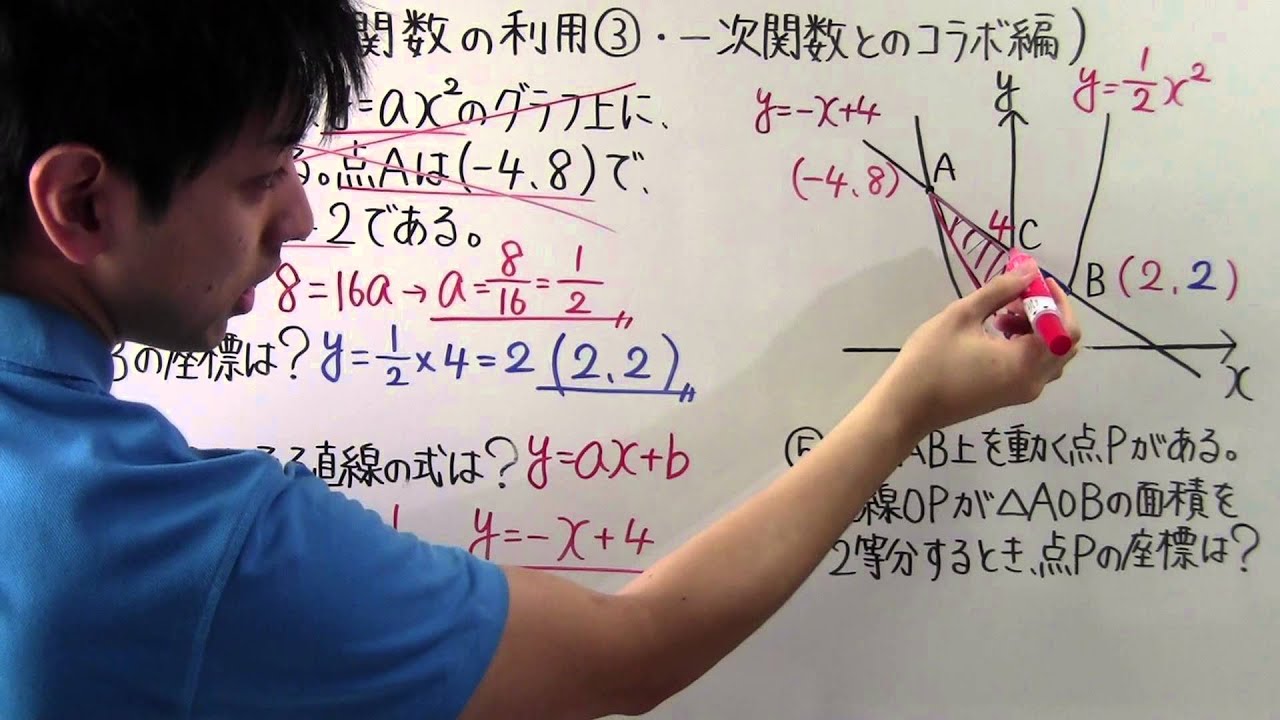 関数の利用③・一次関数とのコラボ編)
=ax²のグラフ上に、
る。点Aは(-4、8)で、
2である。
8=16a→a=8/16=1/2
の座標は? y=1/2×4=2 (2、2)
る直線の式は? y=ax+b
y=-x+4
y=-x+4
y
y=1/2x²
(-4、8)
A
4
C
B(2、2)
x
⑤ AB上を動く点Pがある。
線OPが△AOBの面積を
2等分するとき、点Pの座標は?